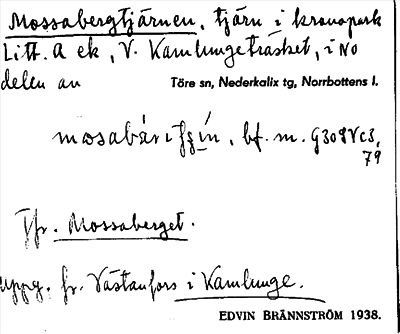 Mossabergtjärnen, tjärn i kronopark
Litt. A ek, V. Kamlungeträsket, i NO
delen av Töre sn, Nederkalix tg, Norrbottens l.
bf. m. G308Vc3,
79
Jfr. Mossaberget.
uppg. fr. Västanfors i Kamlunge.
EDVIN BRÄNNSTRÖM 1938.